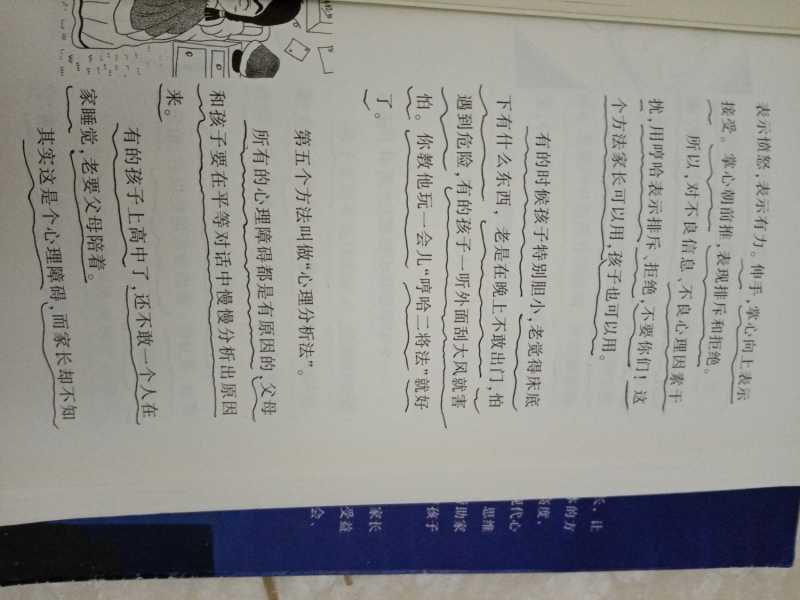 表示愤怒，表示有力。伸手，掌心向上表示
接受。掌心朝前推，表现排斥和拒绝。
所以，对不良信息、不良心理因素干
扰，用哼哈表示排斥、拒绝，不要你们！这
个方法家长可以用，孩子也可以用。
有的时候孩子特别胆小，老觉得床底
下有什么东西，老是在晚上不敢出门，怕
遇到危险，有的孩子一听外面刮大风就害
怕。你教他玩一会儿“哼哈二将法”就好
了。
第五个方法叫做“心理分析法”。
所有的心理障碍都是有原因的，父母
和孩子要在平等对话中慢慢分析出原因
来。
有的孩子上高中了，还不敢一个人在
家睡觉，老要父母陪着。
其实这是个心理障碍，而家长却不知
让
的方
高度、
现代心
思维
助家
孩子
家长
受益
会、